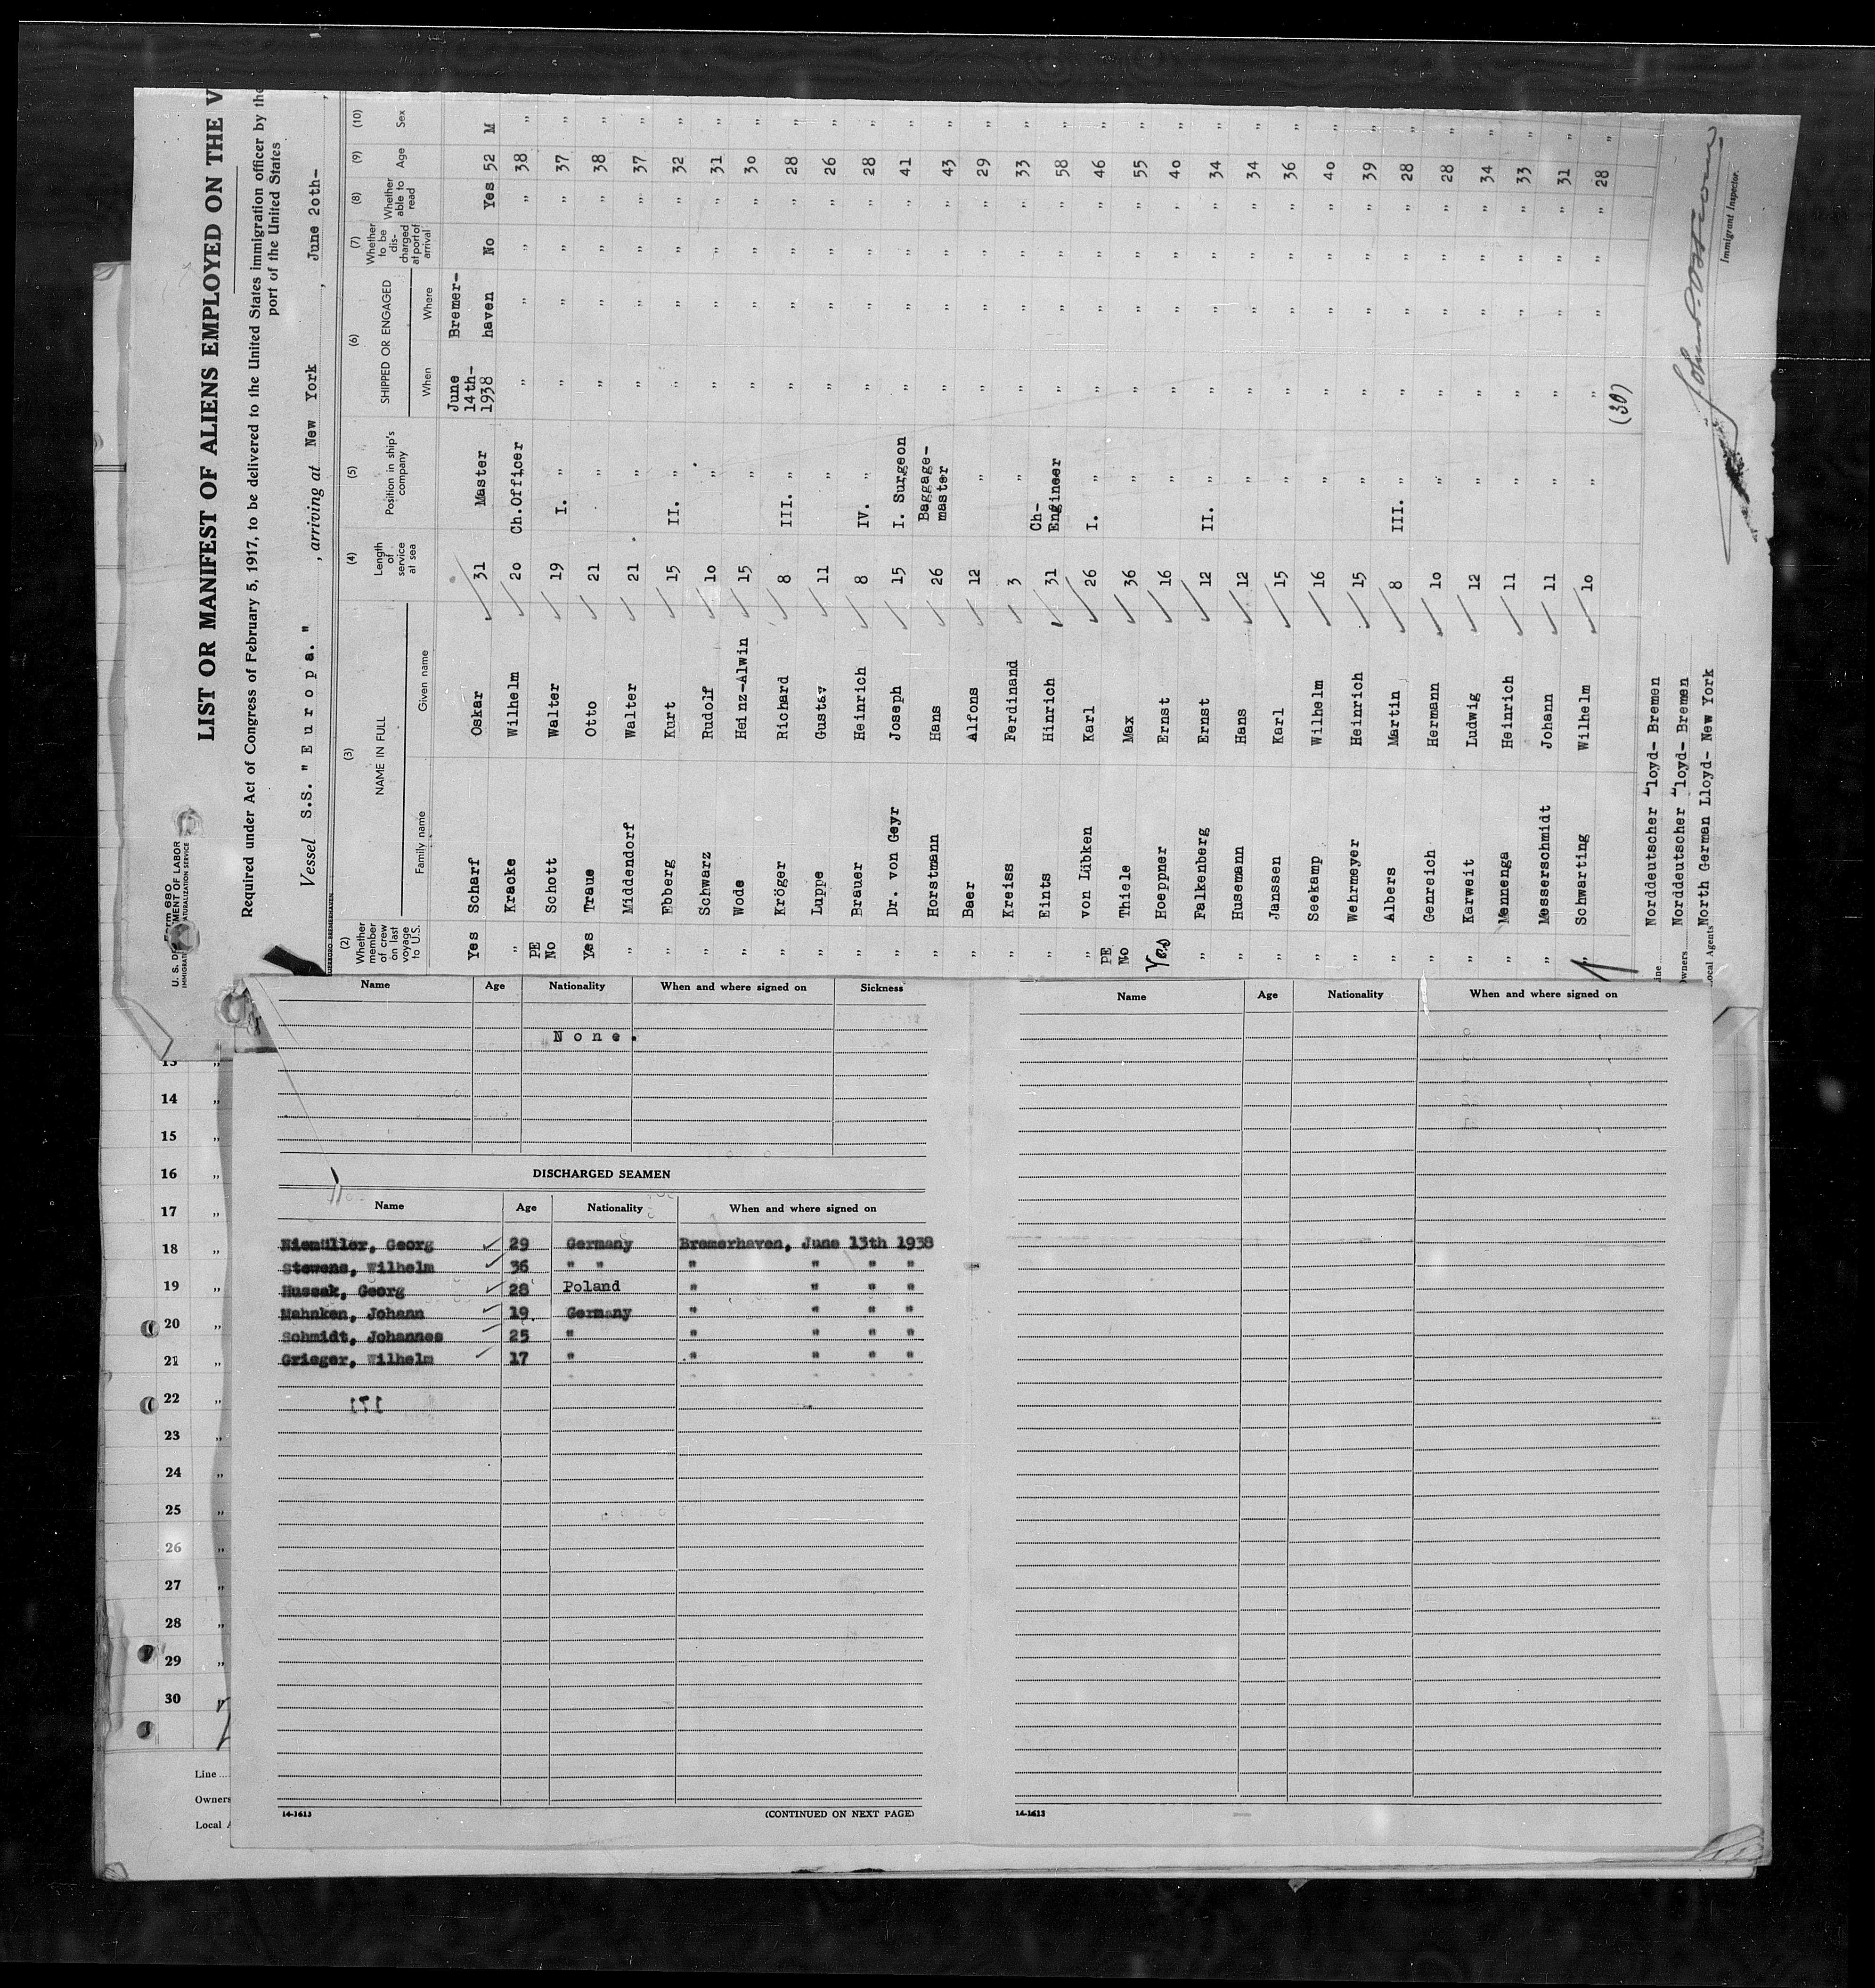 U. S. DEPARTMENT OF LABOR
LIST OR MANIFEST OF ALIENS EMPLOYED ON THE V
Required under Act of Congress of February 5, 1917, to be delivered to the United States immigration officer by the
port of the United States
Vessel S.S. "Europa." , arriving at New York , June 20th-
(2) (3) (4) (5) (6) (7) (8) (9) (10)
Whether member of crew on last voyage to U.S. NAME IN FULL Length of service at sea Position in ship's company SHIPPED OR ENGAGED Whether to be dis-charged at port of arrival Whether able to read Age Sex
Family name Given name When Where
Yes Scharf Oskar 31 Master June 14th- 1938 Bremer-haven No Yes 52 M
" Kracke Wilhelm 20 Ch.Officer " " " " 38 "
PE No Schott Walter 19 I. " " " " " 37 "
Yes Traue Otto 21 " " " " " 38 "
" Middendorf Walter 21 " " " " " 37 "
" Ebberg Kurt 15 II. " " " " " 32 "
" Schwarz Rudolf 10 " " " " " 31 "
" Wode Heinz-Alwin 15 " " " " " 30 "
" Kröger Richard 8 III. " " " " " 28 "
" Luppe Gustav 11 " " " " " 26 "
" Brauer Heinrich 8 IV. " " " " " 28 "
" Dr. von Geyr Joseph 15 I. Surgeon " " " " 41 "
" Horstmann Hans 26 Baggage-master " " " " 43 "
" Baer Alfons 12 " " " " " 29 "
" Kreiss Ferdinand 3 " " " " " 33 "
" Eints Hinrich 31 Ch-Engineer " " " " 58 "
" von Lübken Karl 26 I. " " " " " 46 "
PE No Thiele Max 36 " " " " " 55 "
Yes Hoeppner Ernst 16 " " " " " 40 "
" Falkenberg Ernst 12 II. " " " " " 34 "
" Husemann Hans 12 " " " " " 34 "
" Janssen Karl 15 " " " " " 36 "
" Seekamp Wilhelm 16 " " " " " 40 "
" Wehrmeyer Heinrich 15 " " " " " 39 "
" Albers Martin 8 III. " " " " " 28 "
" Genreich Hermann 10 " " " " " 28 "
" Karweit Ludwig 12 " " " " " 34 "
" Mennenga Heinrich 11 " " " " " 33 "
" Messerschmidt Johann 11 " " " " " 31 "
" Schwarting Wilhelm 10 " " " " " 28 "
(30)
Line Norddeutscher Lloyd- Bremen
Owners Norddeutscher Lloyd- Bremen
Local Agents North German Lloyd- New York
Immigrant Inspector.
Name Age Nationality When and where signed on Sickness
None.
DISCHARGED SEAMEN
Name Age Nationality When and where signed on
Niemüller, Georg 29 Germany Bremerhaven, June 13th 1938
Stewens, Wilhelm 36 " " " " " "
Hussak, Georg 28 Poland " " " "
Mahnken, Johann 19. Germany " " " "
Schmidt, Johannes 25 " " " " "
Grieger, Wilhelm 17 " " " " "
171
14-1613 (CONTINUED ON NEXT PAGE)
Name Age Nationality When and where signed on
14-1613
13 "
14 "
15 "
16 "
17 "
18 "
19 "
20 "
21 "
22 "
23 "
24 "
25 "
26 "
27 "
28 "
29 "
30
Line
Owners
Local A